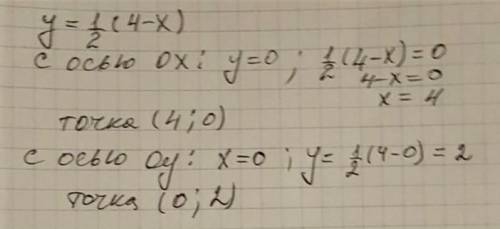 y = 1/2 (4-x)
с осью Ox: y=0; 1/2 (4-x)=0
4-x=0
x = 4
точка (4; 0)
с осью Oy: x=0; y= 1/2 (4-0) = 2
точка (0; 2)